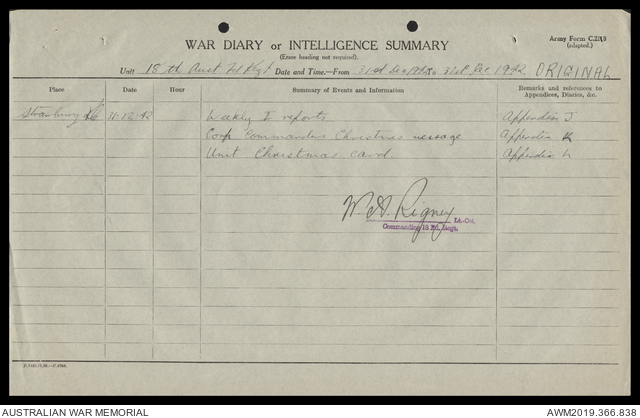 Army Form C.2118
(adapted.)
WAR DIARY or INTELLIGENCE SUMMARY
(Erase heading not required).
Unit 18th Aust Fd Regt Date and Time—From 31st Dec 1942 to 31st Dec 1942 ORIGINAL
Place Date Hour Summary of Events and Information Remarks and references to Appendices, Diaries, &c.
31-12-42 Weekly I reports Appendix J
Corp Commanders Christmas message Appendix K
Unit Christmas card. Appendix L
W.A. Rigney Lt.-Col.
Commanding 18 Fd. Regt.
AUSTRALIAN WAR MEMORIAL AWM2019.366.838